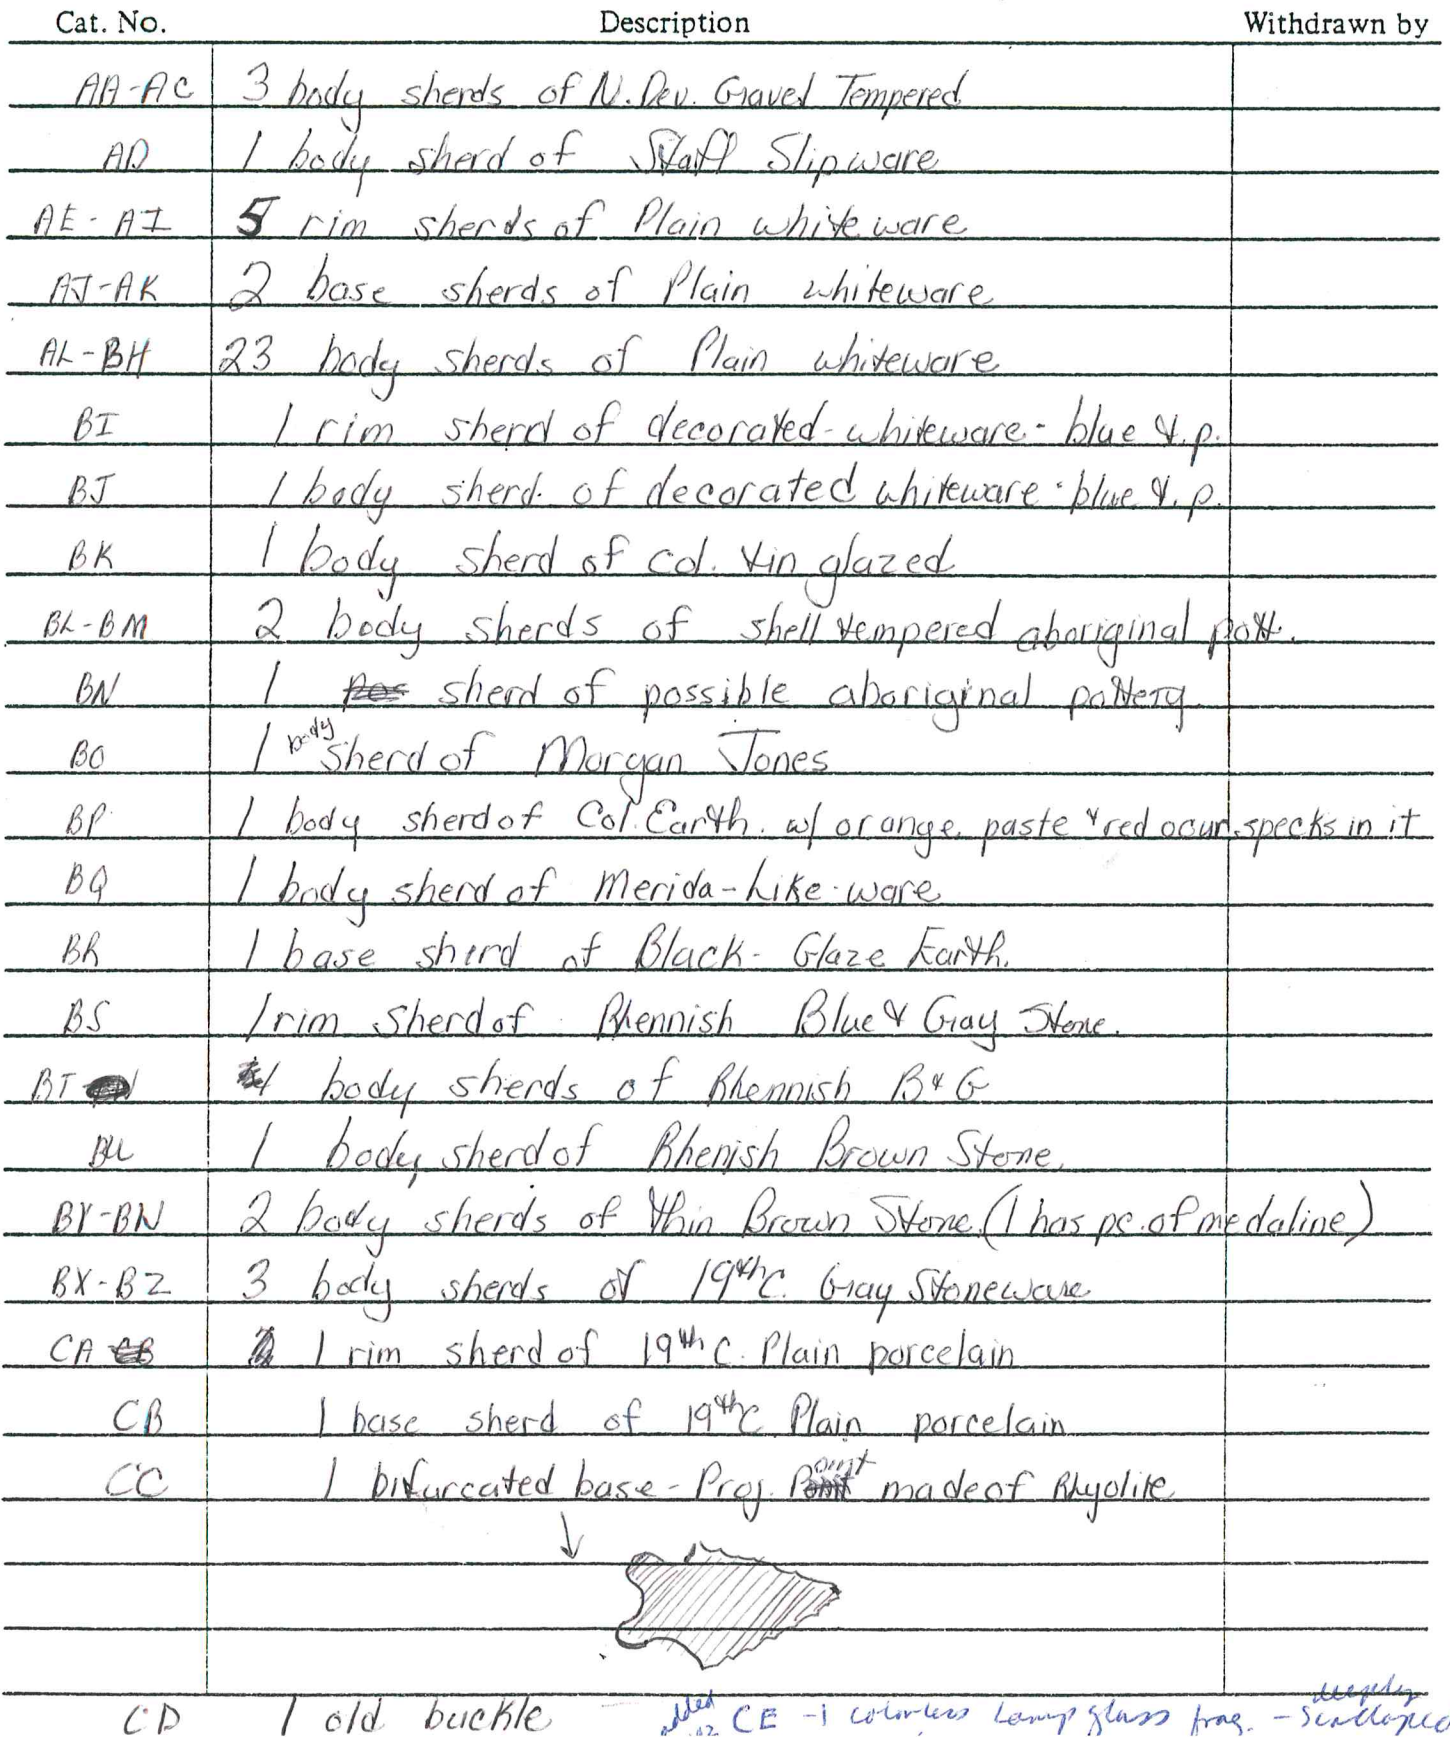 Cat. No. Description Withdrawn by
AA-AC 3 body sherds of N. Dev. Gravel Tempered
AD 1 body sherd of Staff Slipware
AE-AI 5 rim sherds of Plain whiteware
AJ-AK 2 base sherds of Plain whiteware
AL-BH 23 body sherds of Plain whiteware
BI 1 rim sherd of decorated-whiteware-blue t.p.
BJ 1 body sherd of decorated whiteware-blue t.p.
BK 1 body sherd of Col. tin glazed
BL-BM 2 body sherds of shell tempered aboriginal pott.
BN 1 sherd of possible aboriginal pottery
BO 1 body sherd of Morgan Jones
BP 1 body sherd of Col. Earth. w/ orange paste & red ocur. specks in it
BQ 1 body sherd of Merida-Like-ware
BR 1 base sherd of Black-Glaze Earth.
BS 1 rim sherd of Rhennish Blue & Gray Stone.
BT 1 body sherds of Rhennish B & G
BU 1 body sherd of Rhenish Brown Stone.
BV-BW 2 body sherds of thin Brown Stone. (1 has pc. of medaline)
BX-BZ 3 body sherds of 19th C. Gray Stoneware
CA 1 rim sherd of 19th C. Plain porcelain
CB 1 base sherd of 19th C Plain porcelain
CC 1 bifurcated base-Proj. Point made of Rhyolite
CD 1 old buckle added CE -1 colorless Lamp glass frag. - deeply Scalloped